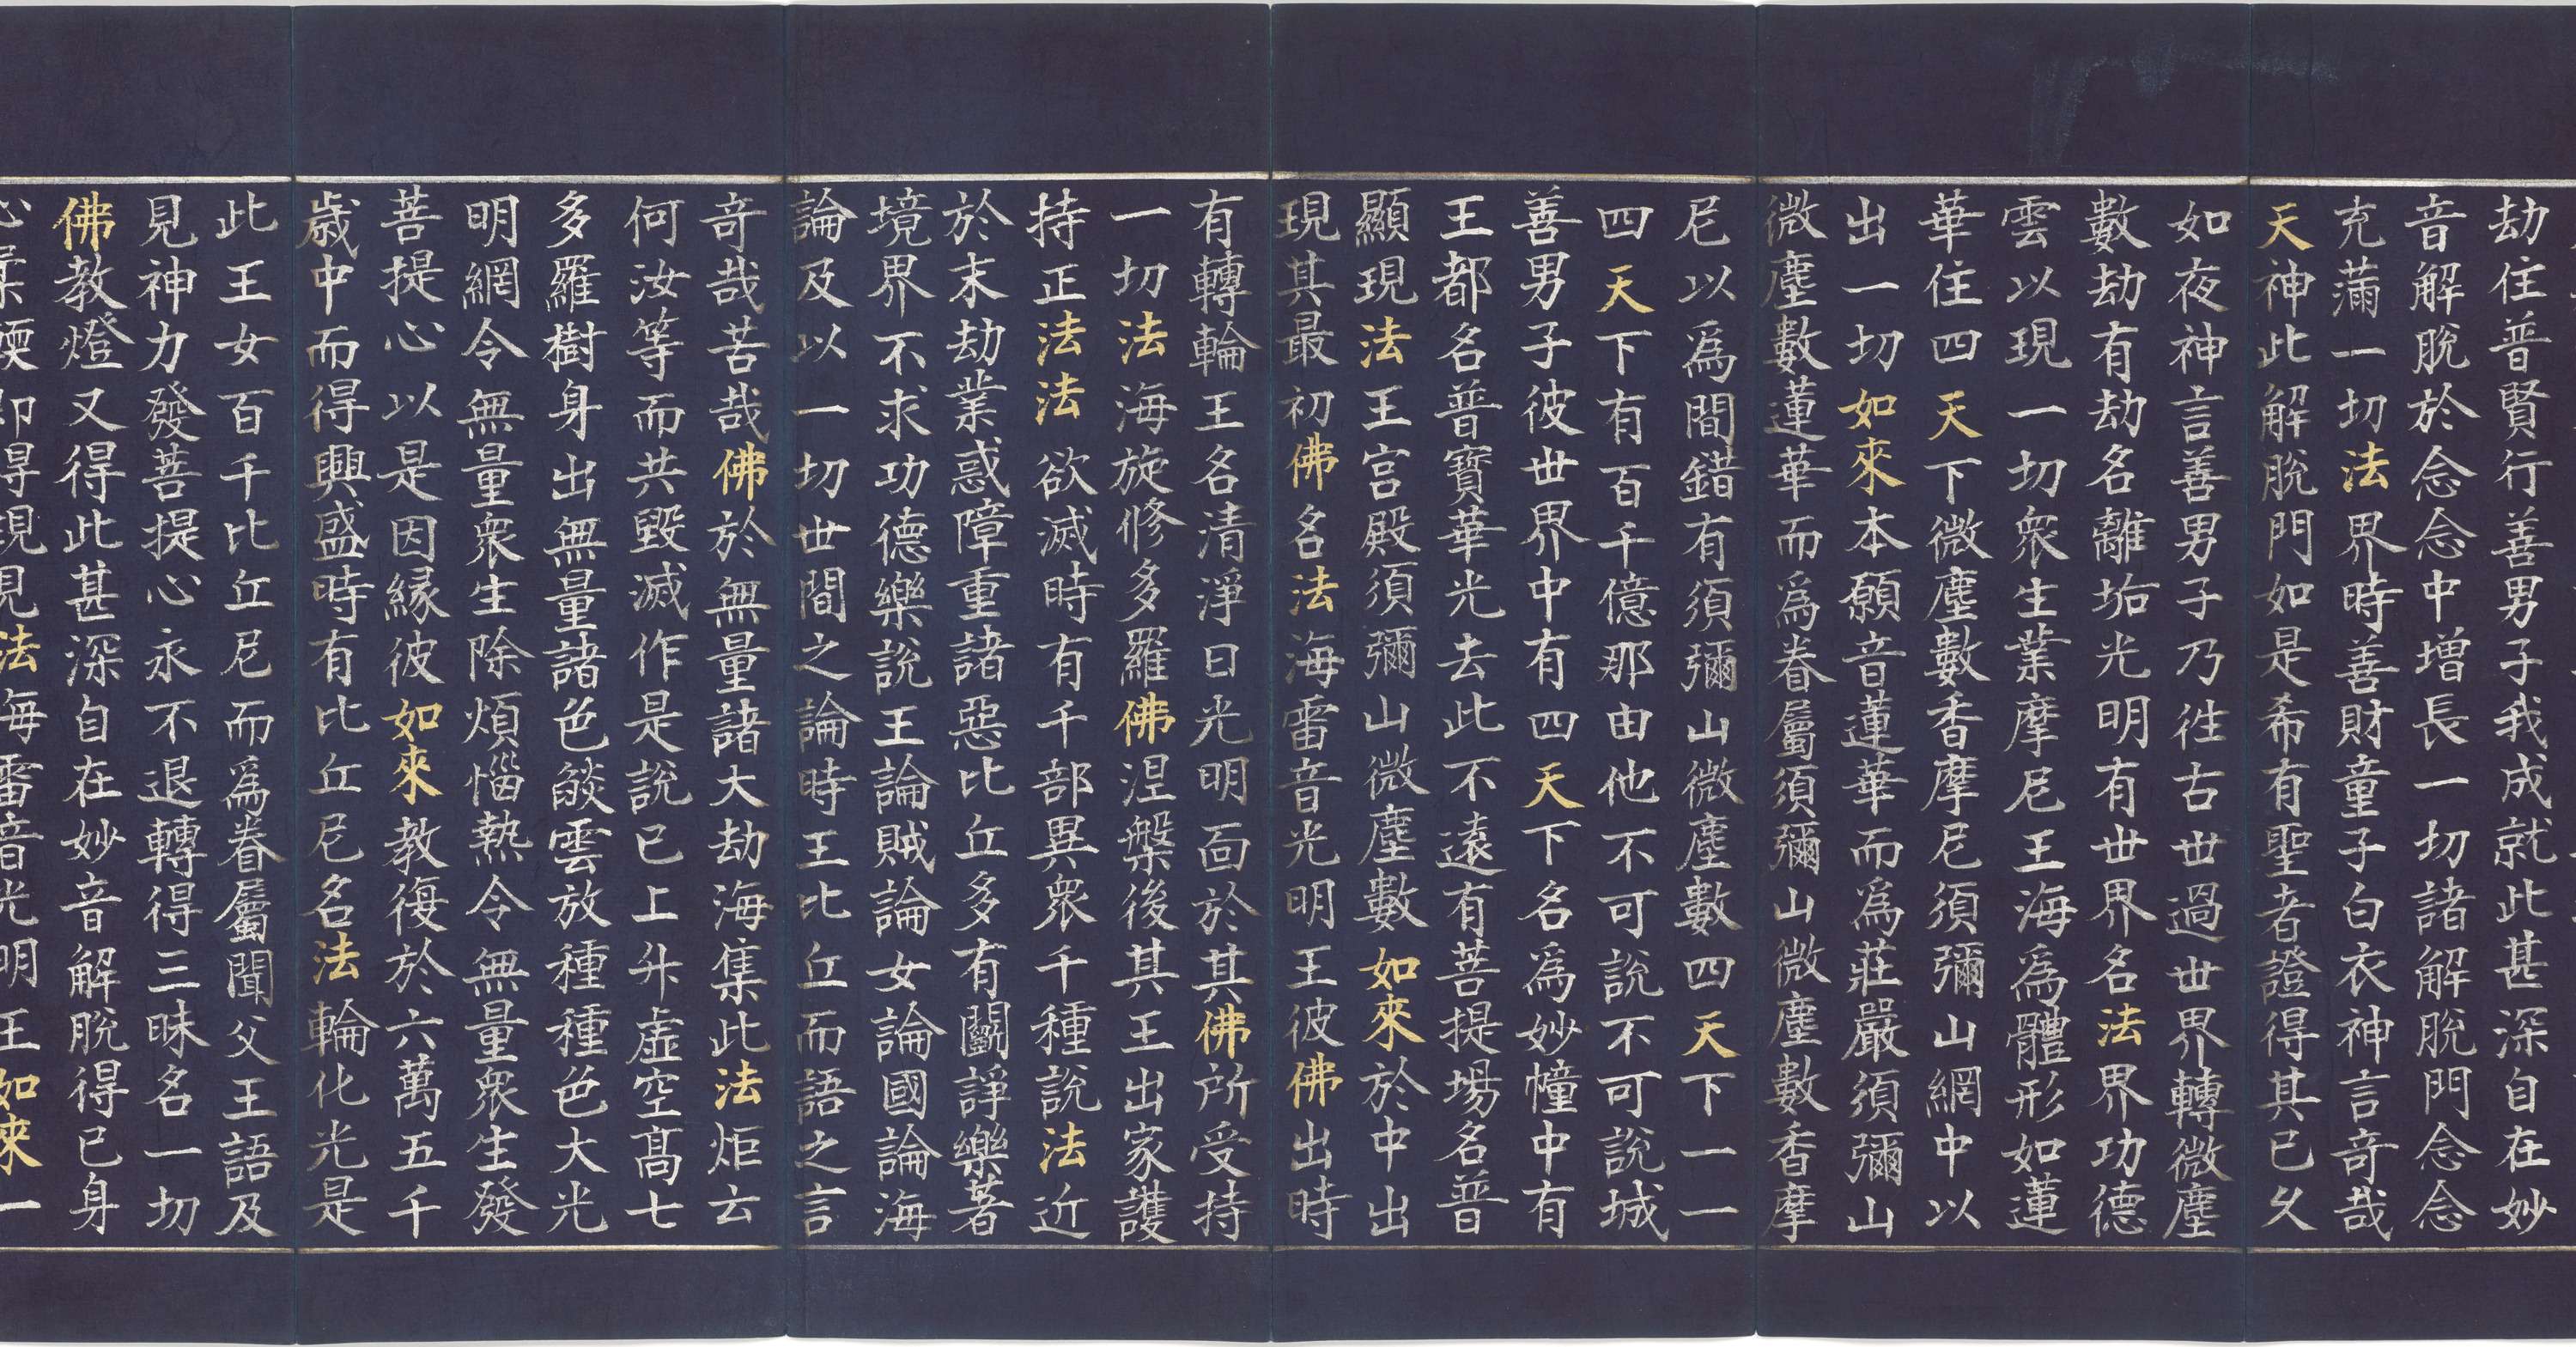 劫住普賢行善男子我成就此甚深自在妙
音解脫於念念中增長一切諸解脫門念念
充滿一切法界時善財童子白衣神言奇哉
天神此解脫門如是希有聖者證得其已久
如夜神言善男子乃徃古世過世界轉微塵
數劫有劫名離垢光明有世界名法界功德
雲以現一切衆生業摩尼王海爲體形如蓮
華住四天下微塵數香摩尼須彌山網中以
出一切如來本願音蓮華而爲莊嚴須彌山
微塵數蓮華而爲眷屬須彌山微塵數香摩
尼以爲間錯有須彌山微塵數四天下一一
四天下有百千億那由他不可說不可說城
善男子彼世界中有四天下名爲妙幢中有
王都名普寶華光去此不遠有菩提場名普
顯現法王宮殿須彌山微塵數如來於中出
現其最初佛名法海雷音光明王彼佛出時
有轉輪王名清淨日光明面於其佛所受持
一切法海旋修多羅佛涅槃後其王出家護
持正法法欲滅時有千部異衆千種說法近
於末劫業惑障重諸惡比丘多有鬪諍樂著
境界不求功德樂說王論賊論女論國論海
論及以一切世間之論時王比丘而語之言
奇哉苦哉佛於無量諸大劫海集此法炬云
何汝等而共毀滅作是說已上升虛空髙七
多羅樹身出無量諸色燄雲放種種色大光
明網令無量衆生除煩惱熱令無量衆生發
菩提心以是因縁彼如來教復於六萬五千
歲中而得興盛時有比丘尼名法輪化光是
此王女百千比丘尼而爲眷屬聞父王語及
見神力發菩提心永不退轉得三昧名一切
佛教燈又得此甚深自在妙音解脫得已身
心柔㬉即得現見法海雷音光明王如來一